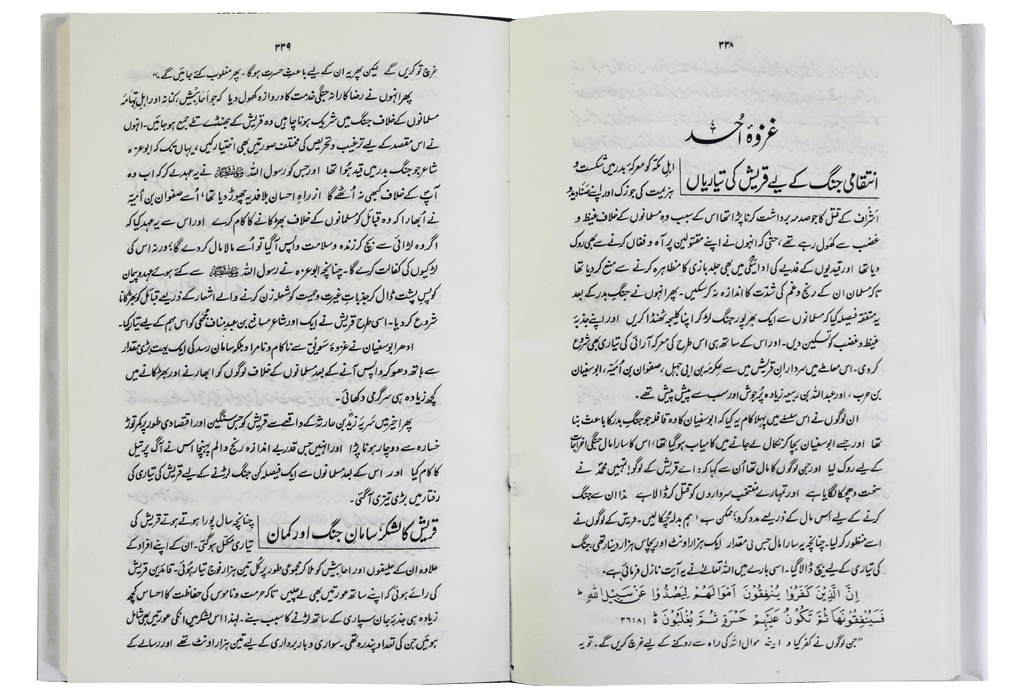 ۳۳۸
غزوۂ اُحد
انتقامی جنگ کے لیے قریش کی تیاریاں
اہل مکہ کو معرکۂ بدر میں شکست و
ہزیمت کی جو زک اور اپنے صنادید و
اشراف کے قتل کا جو صدمہ برداشت کرنا پڑا تھا اس کے سبب وہ مسلمانوں کے خلاف غیظ و
غضب سے کھول رہے تھے، حتیٰ کہ انہوں نے اپنے مقتولین پر آہ و فغاں کرنے سے بھی روک
دیا تھا اور قیدیوں کے فدیے کی ادائیگی میں بھی جلد بازی کا مظاہرہ کرنے سے منع کر دیا تھا
تاکہ مسلمان ان کے رنج و غم کی شدّت کا اندازہ نہ کر سکیں۔ پھر انہوں نے جنگِ بدر کے بعد
یہ متفقہ فیصلہ کیا کہ مسلمانوں سے ایک بھرپور جنگ لڑ کر اپنا کلیجہ ٹھنڈا کریں اور اپنے جذبۂ
غیظ و غضب کو تسکین دیں۔ اور اس کے ساتھ ہی اس طرح کی معرکہ آرائی کی تیاری بھی شروع
کر دی۔ اس معاملے میں سردارانِ قریش میں سے عکرمہ بن ابی جہل، صفوان بن اُمیّہ، ابوسفیان
بن حرب، اور عبداللہ بن ربیعہ زیادہ پُرجوش اور سب سے پیش پیش تھے۔
ان لوگوں نے اس سلسلے میں پہلا کام یہ کیا کہ ابوسفیان کا وہ قافلہ جو جنگِ بدر کا باعث بنا
تھا اور جسے ابوسفیان بچا کر نکال لے جانے میں کامیاب ہو گیا تھا، اس کا سارا مال جنگی اخراجات
کے لیے روک لیا اور جن لوگوں کا مال تھا اُن سے کہا کہ: اے قریش کے لوگو! تمہیں محمّد نے
سخت دھچکا لگایا ہے اور تمہارے منتخب سرداروں کو قتل کر ڈالا ہے لہٰذا ان سے جنگ
کرنے کے لیے اس مال کے ذریعے مدد کرو؛ ممکن ہے ہم بدلہ چکا لیں۔ قریش کے لوگوں نے
اسے منظور کر لیا۔ چنانچہ یہ سارا مال جس کی مقدار ایک ہزار اونٹ اور پچاس ہزار دینار تھی، جنگ
کی تیاری کے لیے بیچ ڈالا گیا۔ اسی بارے میں اللہ تعالےٰ نے یہ آیت نازل فرمائی ہے۔
اِنَّ الَّذِیْنَ کَفَرُوْا یُنْفِقُوْنَ اَمْوَالَهُمْ لِیَصُدُّوْا عَنْ سَبِیْلِ اللهِ ط
فَسَیُنْفِقُوْنَهَا ثُمَّ تَکُوْنُ عَلَیْهِمْ حَسْرَةً ثُمَّ یُغْلَبُوْنَ ۵ (۳۶:۸)
”جن لوگوں نے کفر کیا وہ اپنے اموال اللہ کی راہ سے روکنے کے لیے خرچ کریں گے۔ تو یہ
۳۳۹
خرچ تو کریں گے لیکن پھر یہ ان کے لیے باعثِ حسرت ہوگا۔ پھر مغلوب کئے جائیں گے۔“
پھر انہوں نے رضاکارانہ جنگی خدمت کا دروازہ کھول دیا کہ جو اَحابِیش، کنانہ اور اہلِ تہامہ
مسلمانوں کے خلاف جنگ میں شریک ہونا چاہیں وہ قریش کے جھنڈے تلے جمع ہو جائیں۔ انہوں
نے اس مقصد کے لیے ترغیب و تحریص کی مختلف صورتیں بھی اختیار کیں، یہاں تک کہ ابوعزہ
شاعر جو جنگِ بدر میں قید ہُوا تھا اور جس کو رسول اللہ ﷺ نے یہ عہد لے کر کہ اب وہ
آپؐ کے خلاف کبھی نہ اُٹھے گا ازراہِ احسان بلافدیہ چھوڑ دیا تھا، اُسے صفوان بن اُمیّہ
نے اُبھارا کہ وہ قبائل کو مسلمانوں کے خلاف بھڑکانے کا کام کرے اور اس سے یہ عہد کیا کہ
اگر وہ لڑائی سے بچ کر زندہ و سلامت واپس آگیا تو اُسے مالا مال کر دے گا؛ ورنہ اس کی
لڑکیوں کی کفالت کرے گا۔ چنانچہ ابوعزہ نے رسول اللہ ﷺ سے کئے ہوئے عہد و پیمان
کو پسِ پشت ڈال کر جذباتِ غیرت و حمیّت کو شعلہ زن کرنے والے اشعار کے ذریعے قبائل کو بھڑکانا
شروع کر دیا۔ اسی طرح قریش نے ایک اور شاعر مسافع بن عبدِ مناف جمحی کو اس مہم کے لیے تیار کیا۔
ادھر ابوسفیان نے غزوۂ سَوِیق سے ناکام و نامراد بلکہ سامانِ رسد کی ایک بہت بڑی مقدار
سے ہاتھ دھو کر واپس آنے کے بعد مسلمانوں کے خلاف لوگوں کو ابھارنے اور بھڑکانے میں
کچھ زیادہ ہی سرگرمی دکھائی۔
پھر اخیر میں سَرِیّۂ زیدؓ بن حارثہ کے واقعے سے قریش کو جس سنگین اور اقتصادی طور پر کمر توڑ
خسارہ سے دوچار ہونا پڑا اور انہیں جس قدر بے اندازہ رنج و الم پہنچا اس نے آگ پر تیل
کا کام کیا اور اس کے بعد مسلمانوں سے ایک فیصلہ کن جنگ لڑنے کے لیے قریش کی تیاری کی
رفتار میں بڑی تیزی آگئی۔
قریش کا لشکر، سامانِ جنگ اور کمان
چنانچہ سال پورا ہوتے ہوتے قریش کی
تیاری مکمل ہو گئی۔ ان کے اپنے افراد کے
علاوہ ان کے حلیفوں اور احابیش کو ملا کر مجموعی طور پر کل تین ہزار فوج تیار ہوئی۔ قائدینِ قریش
کی رائے ہوئی کہ اپنے ساتھ عورتیں بھی لے چلیں تاکہ حرمت و ناموس کی حفاظت کا احساس کچھ
زیادہ ہی جذبۂ جان سپاری کے ساتھ لڑنے کا سبب بنے۔ لہٰذا اس لشکر میں انکی عورتیں بھی شامل
ہوئیں جن کی تعداد پندرہ تھی۔ سواری و بار برداری کے لیے تین ہزار اونٹ تھے اور رسالے کے